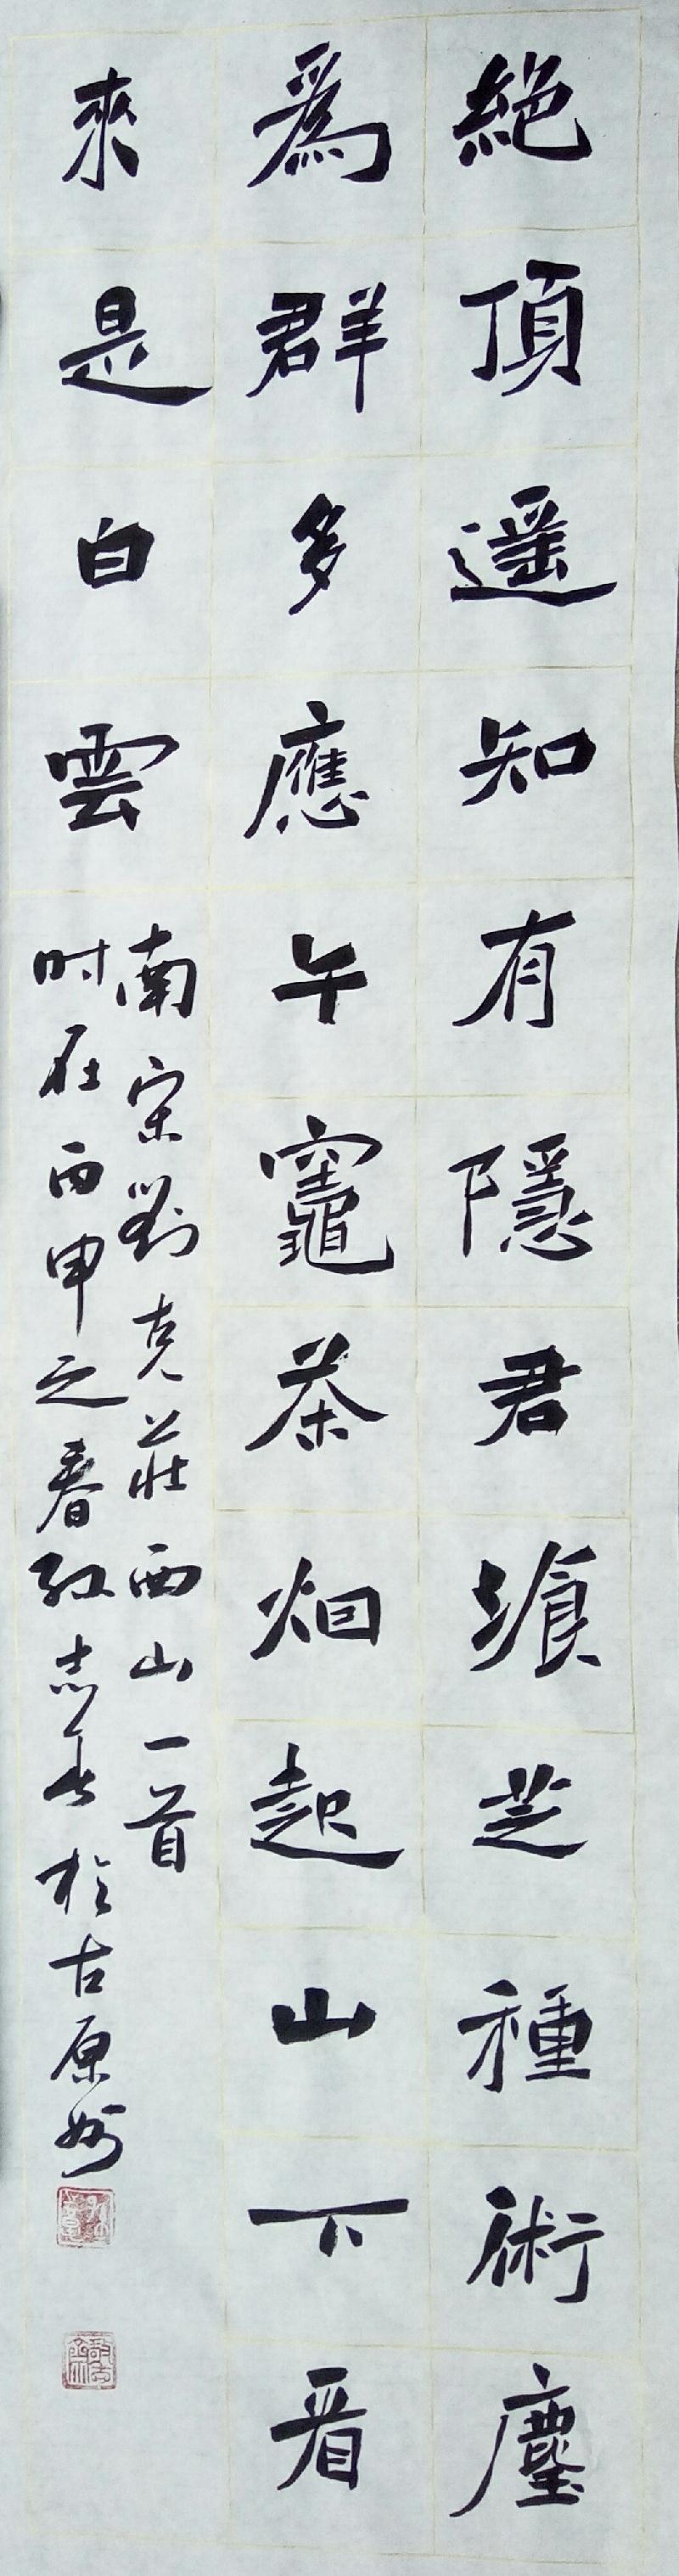 絕頂遥知有隱君飡芝種術麈
為群多應午竈茶烟起山下看
來是白雲
南宋劉克莊西山一首
时在丙申之春 志 於古原州